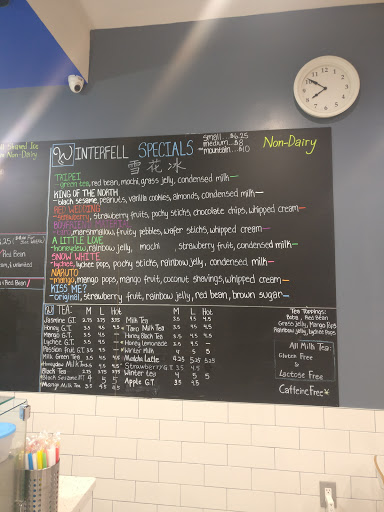 small ... $6.25
medium ... $8
mountain ... $10
WINTERFELL SPECIALS
雪花冰
Non-Dairy
TAIPEI
-green tea, red bean, mochi, grass jelly, condensed milk-
KING OF THE NORTH
-black sesame, peanuts, vanilla cookies, almonds, condensed milk-
RED WEDDING
-strawberry, strawberry fruits, pocky sticks, chocolate chips, whipped cream-
marshmallow, fruity pebbles, wafer sticks, whipped cream-
A LITTLE LOVE
-honeydew, rainbow jelly, mochi, strawberry fruit, condensed milk-
SNOW WHITE
-lychee, lychee pops, pocky sticks, rainbow jelly, condensed milk-
NARUTO
-mango, mango pops, mango fruit, coconut shavings, whipped cream-
KISS ME?
-original, strawberry fruit, rainbow jelly, red bean, brown sugar-
TEA: M L Hot
Jasmine G.T.
Honey G.T. 3.5 4.5
Mango G.T.
Lychee G.T.
Passion fruit G.T.
Milk Green Tea
Honeydew Milk Tea
Black Tea
Black Sesame MT 4 5 5
Mango Milk Tea
M L Hot
Milk Tea 3.5 4.5 4.5
Taro Milk Tea 3.5 4.5 4.5
Honey Black Tea 3.5 4.5 4.5
Honey Lemonade
Winter Milk 4 5 5
Matcha Latte 4.25 5.25 5.25
Strawberry G.T. 3.5 4.5
Winter tea 4 5 5
Apple G.T. 3.5 4.5
Tea Toppings:
Boba, Red Bean
Grass Jelly, Mango Pops
Rainbow Jelly, Lychee Pops
All Milk Tea:
Gluten Free
&
Lactose Free
Caffeine Free
Non-Dairy
Red Bean